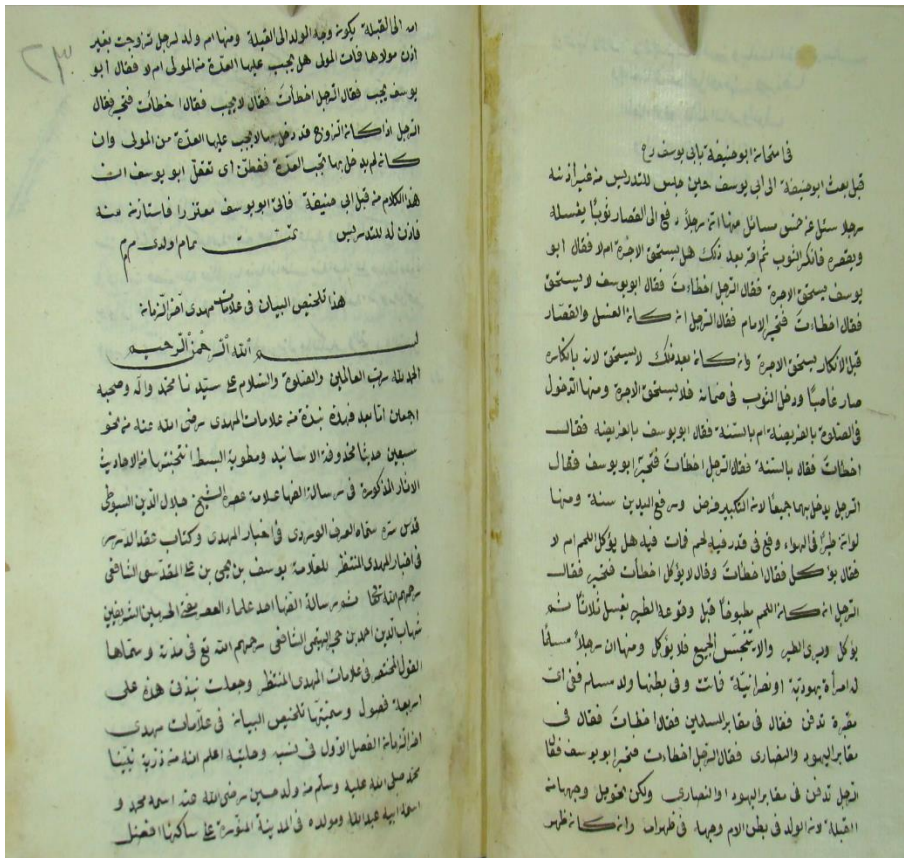 فى امتحانه ابو حنيفة بابى يوسف ره
قيل بعث ابو حنيفة الى ابى يوسف حين جلس للتدريس من غير اذنه
رجلا سئل عن خمس مسائل منها انه رجلا دفع الى القصار ثوبًا يغسله
ويقصره فانكر الثوب ثم اقر بعد ذلك هل يستحق الاجرة ام لا فقال ابو
يوسف يستحق الاجرة فقال الرجل اخطاءت فقال ابو يوسف لا يستحق
فقال اخطاءت فتحير الامام فقال الرجل ان كانه الغسل والقصار
قبل الانكار يستحق الاجرة وانه كانه بعد ذلك لا يستحق لانه بانكاره
صار غاصبًا ودخل الثوب فى ضمانه فلا يستحق الاجرة ومنها الدخول
فى الصلوة بالفريضة ام بالسنة فقال ابو يوسف بالفريضه فقال
اخطات فقال بالسنة فقال الرجل اخطات فتحير ابو يوسف فقال
الرجل يدخل بهما جميعا لانه التكبير فرض ورفع اليدين سنة ومنها
لو انه طيرًا فى الهواء وقع فى قدر فيه لحم فمات فيه هل يؤكل اللحم ام لا
فقال يؤكل فقال اخطات وقال لا يؤكل اخطأت فتحير فقال
الرجل انه كانه اللحم مطبوخًا قبل وقوعه الطير يغسل ثلاثًا ثم
يؤكل ويرى الطير والا يتنجس الجميع فلا يؤكل ومنها ان رجلاً مسلمًا
له امرأة يهودية او نصرانية ماتت وفى بطنها ولد مسلم ففى اى
مقبرة تدفن فقال فى مقابر المسلمين فقال اخطات فقال فى
مقابر اليهود والنصارى فقال الرجل اخطاءت فتحير ابو يوسف فقا
الرجل تدفن فى مقابر اليهود او النصارى ولكن يحول وجهها منه
القبلة لانه الولد فى بطن الام وجهه فى ظهر امه وانه كانه ظهر
امه الى القبلة يكونه وجه الولد الى القبلة ومنها ام ولد لرجل تزوجت بغير
اذن مولاها فمات المولى هل يجب عليها العدة منه المولى ام لا فقال ابو
يوسف يجب فقال الرجل اخطأت فقال لا يجب فقال اخطأت فتحير فقال
الرجل اذا كانه الزوج قد دخل بها لا يجب عليها العدة من المولى وان
كانه لم يدخل بها يجب العدة ففطن اى تعقل ابو يوسف ان
هذا الكلام من قبل ابى حنيفة فاتى ابو يوسف معتذرا فاستاذنه منه
فاذن له للتدريس تمت
هذا تلخيص البيان فى علامات مهدى آخر الزمانه
بسم الله الرحمن الرحيم
الحمد لله رب العالمين والصلوة والسلام على سيدنا محمد واله وصحبه
اجمعين اما بعد فهذه نبذة منه علامات المهدى رضى الله عنه منه نحو
سبعين حديثا محذوفة الاسانيد ومطوية البسط انتخبتها منه الاحاديث
الاثار المذكورة فى رسالة الفها علامة عصره الشيخ جلال الدين السيوطى
قدس سره سماه العرف الوردى فى اخبار المهدى وكتاب عقد الدرر
فى اخبار المهدى المنتظر للعلامة يوسف بن يحيى بن على المقدسى الشافعى
رحمهم الله ثم رسالة الفها احد علماء العصر الحرمين الشريفين
شهاب الدين احمد بن حجر الهيتمى الشافعى رحمهم الله تع وسماها
القول المختصر فى علامات المهدى المنتظر وجعلت نبذتى هذه على
اربعة فصول وسميتها تلخيص البيانه فى علامات مهدى
اخر الزمانه الفصل الاول فى نسبه وحليته اعلم انه منه ذرية نبينا
محمد صلى الله عليه وسلم منه ولد حسين رضى الله عنه اسمه محمد و
اسم ابيه عبد الله ومولده فى المدينة المنورة على ساكنها افضل